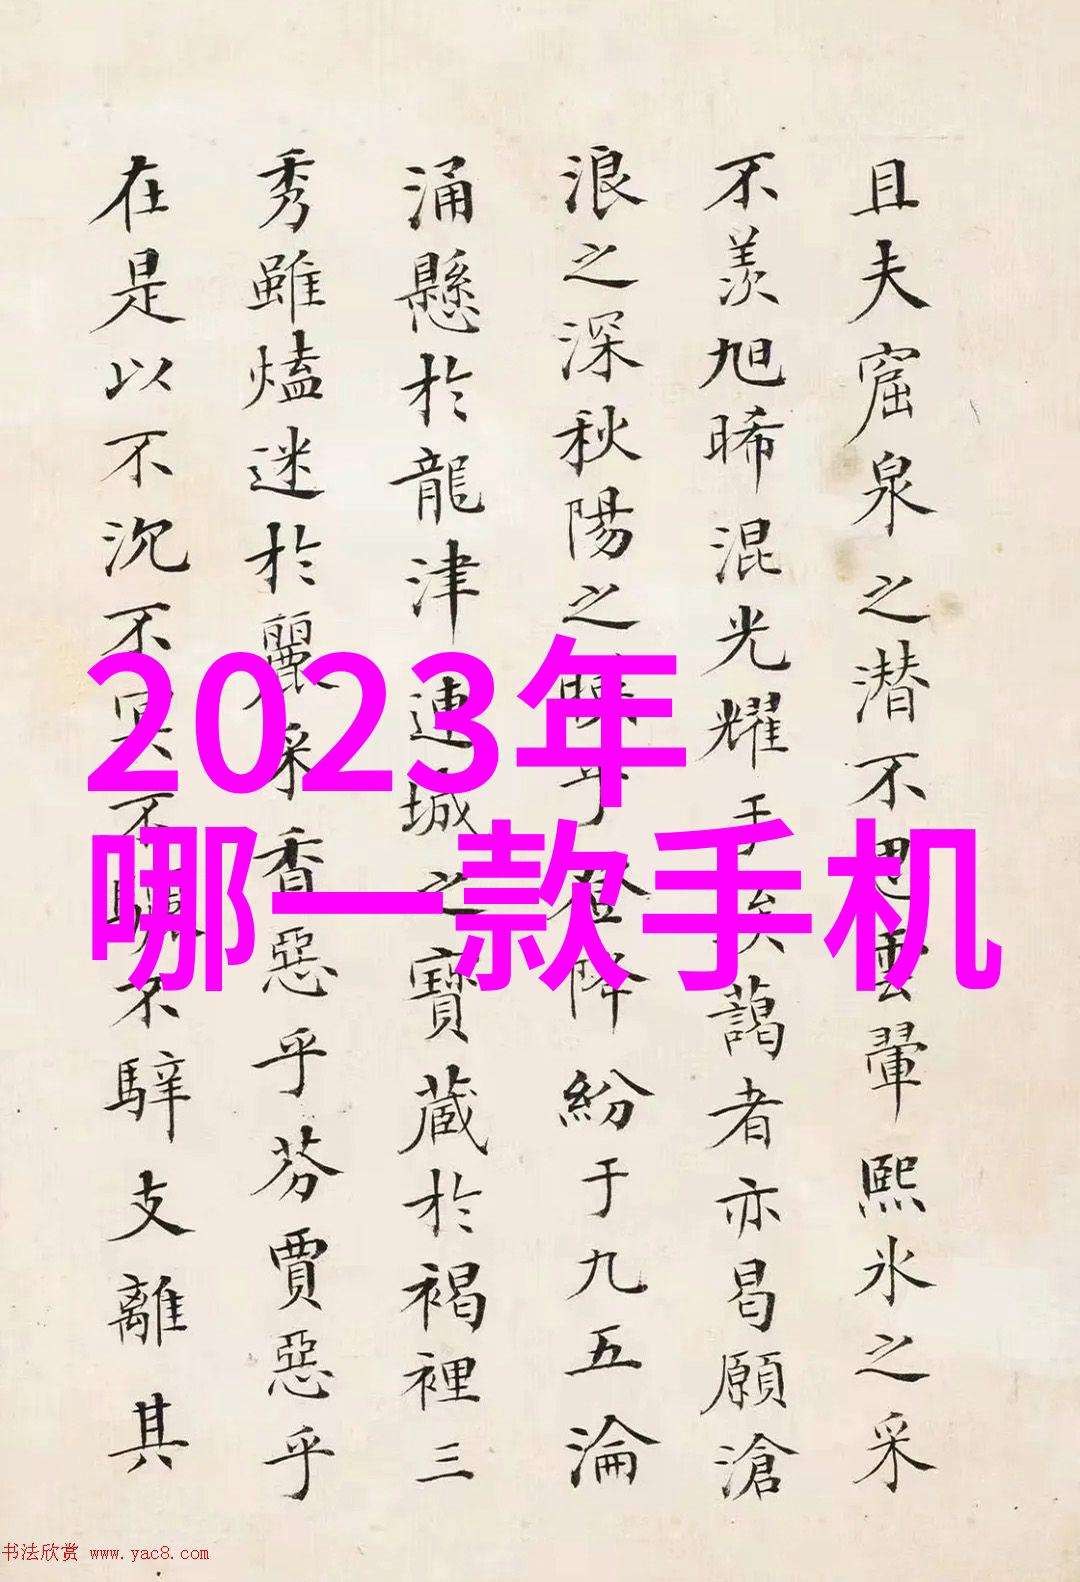 且夫窟泉之潜不思雲翬熙氷之采
不羨旭晞混光耀于埃藹者亦曷願滄
浪之深秋陽之乎登降紛于九五淪
涌懸於龍津連城之寶蔵於褐裡三
秀雖熆迷於麗采香惡乎芬賈惡乎
在是以不沉不冥不不騂支離其
2023年
哪一款手机
书法欣赏 www.yac8.com